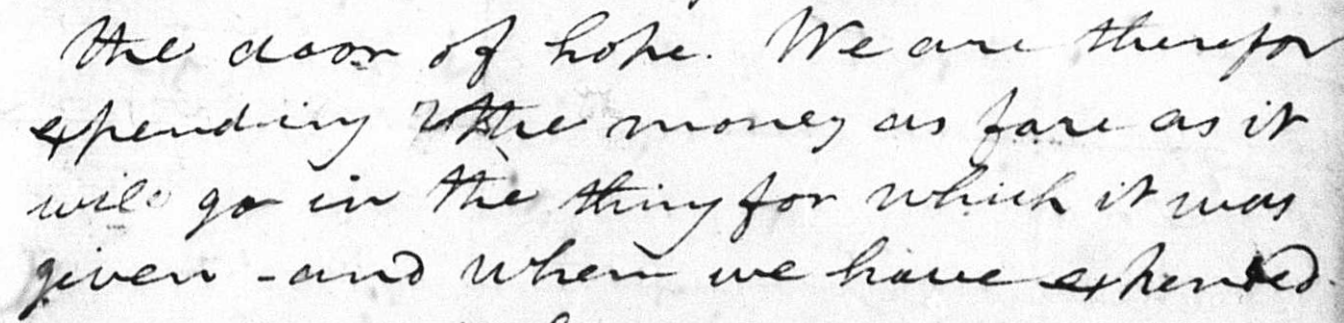 the door of hope. We are therefor
expending the money as fare as it
will go in the thing for which it was
given - and when we have expended